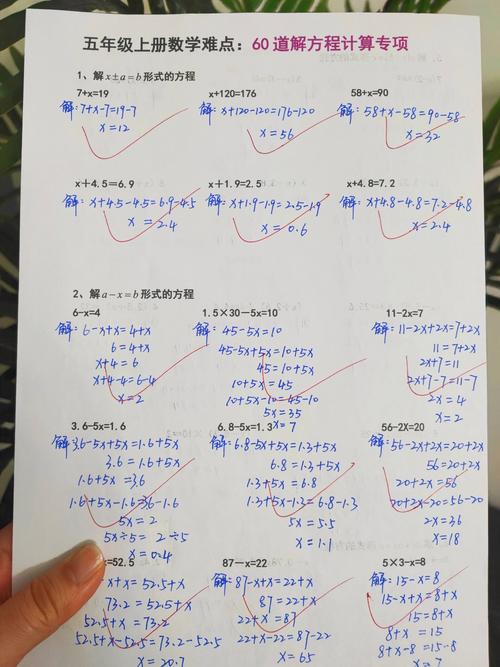 五年级上册数学难点：60 道解方程计算专项
1、解 x±a=b 形式的方程
7+x=19 x+120=176 58+x=90
解：7+x-7=19-7 解：x+120-120=176-120 解：58+x-58=90-58
x=12 x=56 x=32
x+4.5=6.9 x+1.9=2.5 x+4.8=7.2
解：x+4.5-4.5=6.9-4.5 解：x+1.9-1.9=2.5-1.9 解：x+4.8-4.8=7.2-4.8
x=2.4 x=0.6 x=2.4
2、解 a-x=b 形式的方程
6-x=4 1.5×30-5x=10 11-2x=7
解：6-x+x=4+x 解：45-5x=10 解：11-2x+2x=7+2x
6=4+x 45-5x+5x=10+5x 11=7+2x
x+4=6 45=10+5x 2x+7=11
x+4-4=6-4 10+5x=45 2x+7-7=11-7
x=2 10+5x-10=45-10 2x=4
5x=35 x=2
x=7
3.6-5x=1.6 6.8-5x=1.3 56-2X=20
解：3.6-5x+5x=1.6+5x 解：6.8-5x+5x=1.3+5x 解：56-2x+2x=20+2x
3.6=1.6+5x 6.8=1.3+5x 56=20+2x
1.6+5x=3.6 1.3+5x=6.8 20+2x=56
1.6+5x-1.6=3.6-1.6 1.3+5x-1.3=6.8-1.3 20+2x-20=56-20
5x=2 5x=5.5 2x=36
5x÷5=2÷5 x=1.1 x=18
x=0.4
x=52.5 87-x=22 5×3-x=8
x+x=52.5+x 解：87-x+x=22+x 解：15-x=8
73.2=52.5+x 87=22+x 15-x+x=8+x
52.5+x=73.2 22+x=87 15=8+x
52.5+x-52.5=73.2-52.5 22+x-22=87-22 8+x=15
x=20.7 x=65 8+x-8=15-8
x=7